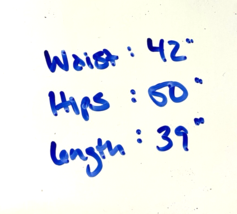 Waist: 42"
Hips: 50"
Length: 39"